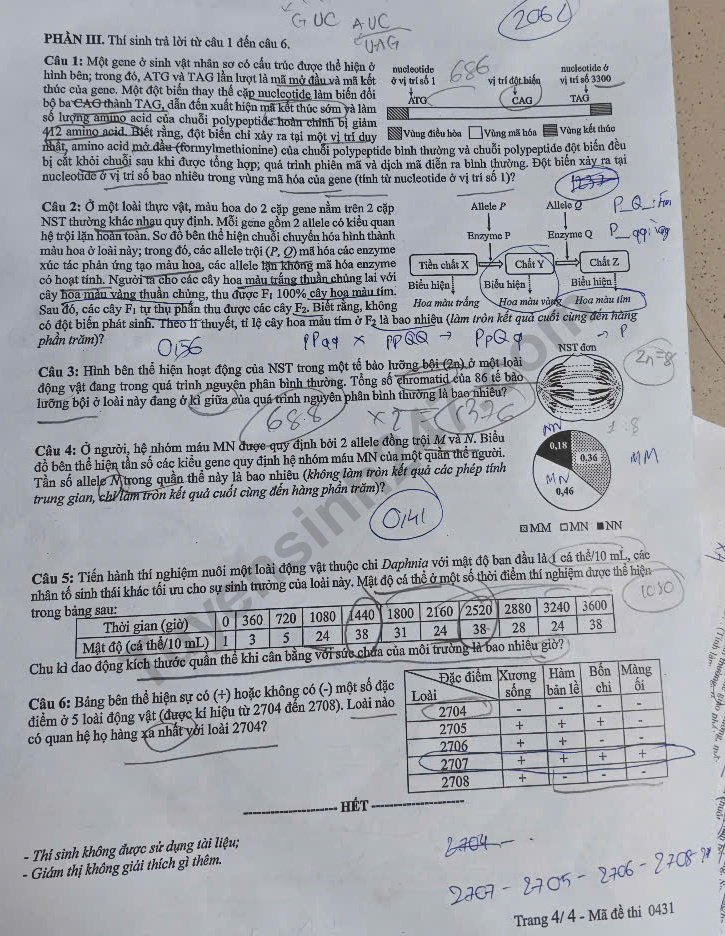 G UC AUC
UAG
2064
PHẦN III. Thí sinh trả lời từ câu 1 đến câu 6.
Câu 1: Một gene ở sinh vật nhân sơ có cấu trúc được thể hiện ở
hình bên; trong đó, ATG và TAG lần lượt là mã mở đầu và mã kết
thúc của gene. Một đột biến thay thế cặp nucleotide làm biến đổi
bộ ba CAG thành TAG, dẫn đến xuất hiện mã kết thúc sớm và làm
số lượng amino acid của chuỗi polypeptide hoàn chỉnh bị giảm
412 amino acid. Biết rằng, đột biến chỉ xảy ra tại một vị trí duy
nhất, amino acid mở đầu (formylmethionine) của chuỗi polypeptide bình thường và chuỗi polypeptide đột biến đều
bị cắt khỏi chuỗi sau khi được tổng hợp; quá trình phiên mã và dịch mã diễn ra bình thường. Đột biến xảy ra tại
nucleotide ở vị trí số bao nhiêu trong vùng mã hóa của gene (tính từ nucleotide ở vị trí số 1)?
nucleotide
ở vị trí số 1
686
vị trí đột biến
nucleotide ở
vị trí số 3300
ATG CAG TAG
Vùng điều hòa Vùng mã hóa Vùng kết thúc
1237
Câu 2: Ở một loài thực vật, màu hoa do 2 cặp gene nằm trên 2 cặp
NST thường khác nhau quy định. Mỗi gene gồm 2 allele có kiểu quan
hệ trội lặn hoàn toàn. Sơ đồ bên thể hiện chuỗi chuyển hóa hình thành
màu hoa ở loài này; trong đó, các allele trội (P, Q) mã hóa các enzyme
xúc tác phản ứng tạo màu hoa, các allele lặn không mã hóa enzyme
có hoạt tính. Người ta cho các cây hoa màu trắng thuần chủng lai với
cây hoa màu vàng thuần chủng, thu được F1 100% cây hoa màu tím.
Sau đó, các cây F1 tự thụ phấn thu được các cây F2. Biết rằng, không
có đột biến phát sinh. Theo lí thuyết, tỉ lệ cây hoa màu tím ở F2 là bao nhiêu (làm tròn kết quả cuối cùng đến hàng
phần trăm)?
Allele P Allele Q
Enzyme P Enzyme Q
Tiền chất X Chất Y Chất Z
Biểu hiện Biểu hiện Biểu hiện
Hoa màu trắng Hoa màu vàng Hoa màu tím
P_Q_: tím
P_qq: vàng
0,56
PPqq x ppQQ → PpQq
→ P
Câu 3: Hình bên thể hiện hoạt động của NST trong một tế bào lưỡng bội (2n) ở một loài
động vật đang trong quá trình nguyên phân bình thường. Tổng số chromatid của 86 tế bào
lưỡng bội ở loài này đang ở kì giữa của quá trình nguyên phân bình thường là bao nhiêu?
NST đơn
2n=8
688 x 2 = 1376
1:8
Câu 4: Ở người, hệ nhóm máu MN được quy định bởi 2 allele đồng trội M và N. Biểu
đồ bên thể hiện tần số các kiểu gene quy định hệ nhóm máu MN của một quần thể người.
Tần số allele N trong quần thể này là bao nhiêu (không làm tròn kết quả các phép tính
trung gian, chỉ làm tròn kết quả cuối cùng đến hàng phần trăm)?
NN
0,18
0,36
MM
MN
0,46
MM MN NN
0,41
Câu 5: Tiến hành thí nghiệm nuôi một loài động vật thuộc chi Daphnia với mật độ ban đầu là 1 cá thể/10 mL, các
nhân tố sinh thái khác tối ưu cho sự sinh trưởng của loài này. Mật độ cá thể ở một số thời điểm thí nghiệm được thể hiện
trong bảng sau:
1080
Thời gian (giờ) 0 360 720 1080 1440 1800 2160 2520 2880 3240 3600
Mật độ (cá thể/10 mL) 1 3 5 24 38 31 24 38 28 24 38
Chu kì dao động kích thước quần thể khi cân bằng với sức chứa của môi trường là bao nhiêu giờ?
Câu 6: Bảng bên thể hiện sự có (+) hoặc không có (-) một số đặc
điểm ở 5 loài động vật (được kí hiệu từ 2704 đến 2708). Loài nào
có quan hệ họ hàng xa nhất với loài 2704?
Đặc điểm Xương sống Hàm bản lề Bốn chi Màng ối
Loài
2704 - - - -
2705 + + + -
2706 + + - -
2707 + + + +
2708 + - - -
HẾT
- Thí sinh không được sử dụng tài liệu;
- Giám thị không giải thích gì thêm.
2704 -
2707 - 2705 - 2706 - 2708
Trang 4/4 - Mã đề thi 0431